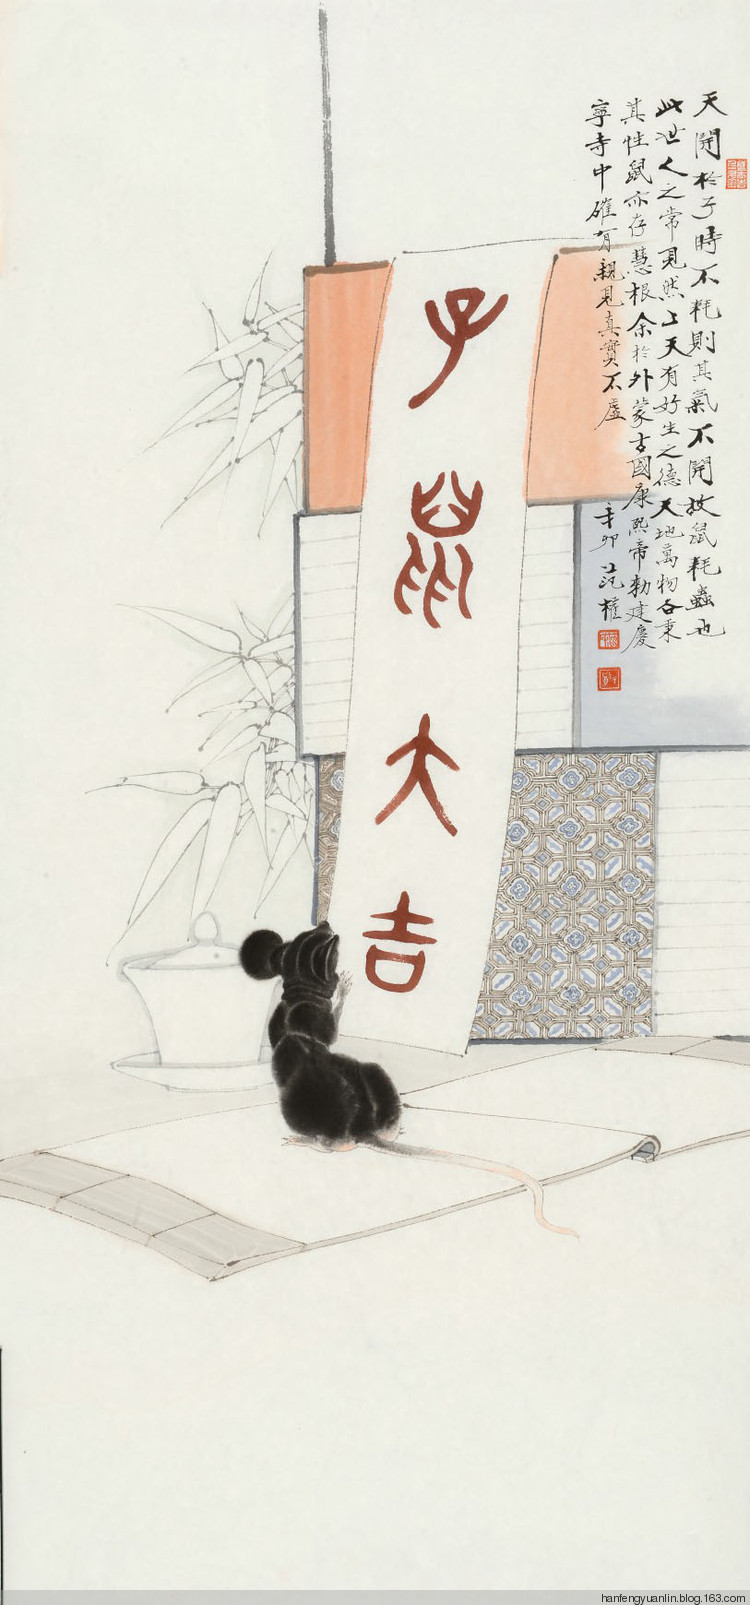 天開於子時不耗則其氣不開故鼠耗蟲也
此世人之常見然上天有好生之德天地萬物各秉
其性鼠亦存慧根余於外蒙古國康熙帝勅建慶
寧寺中確有親見真實不虛
辛卯 范權
子鼠大吉
hanfengyuanlin.blog.163.com